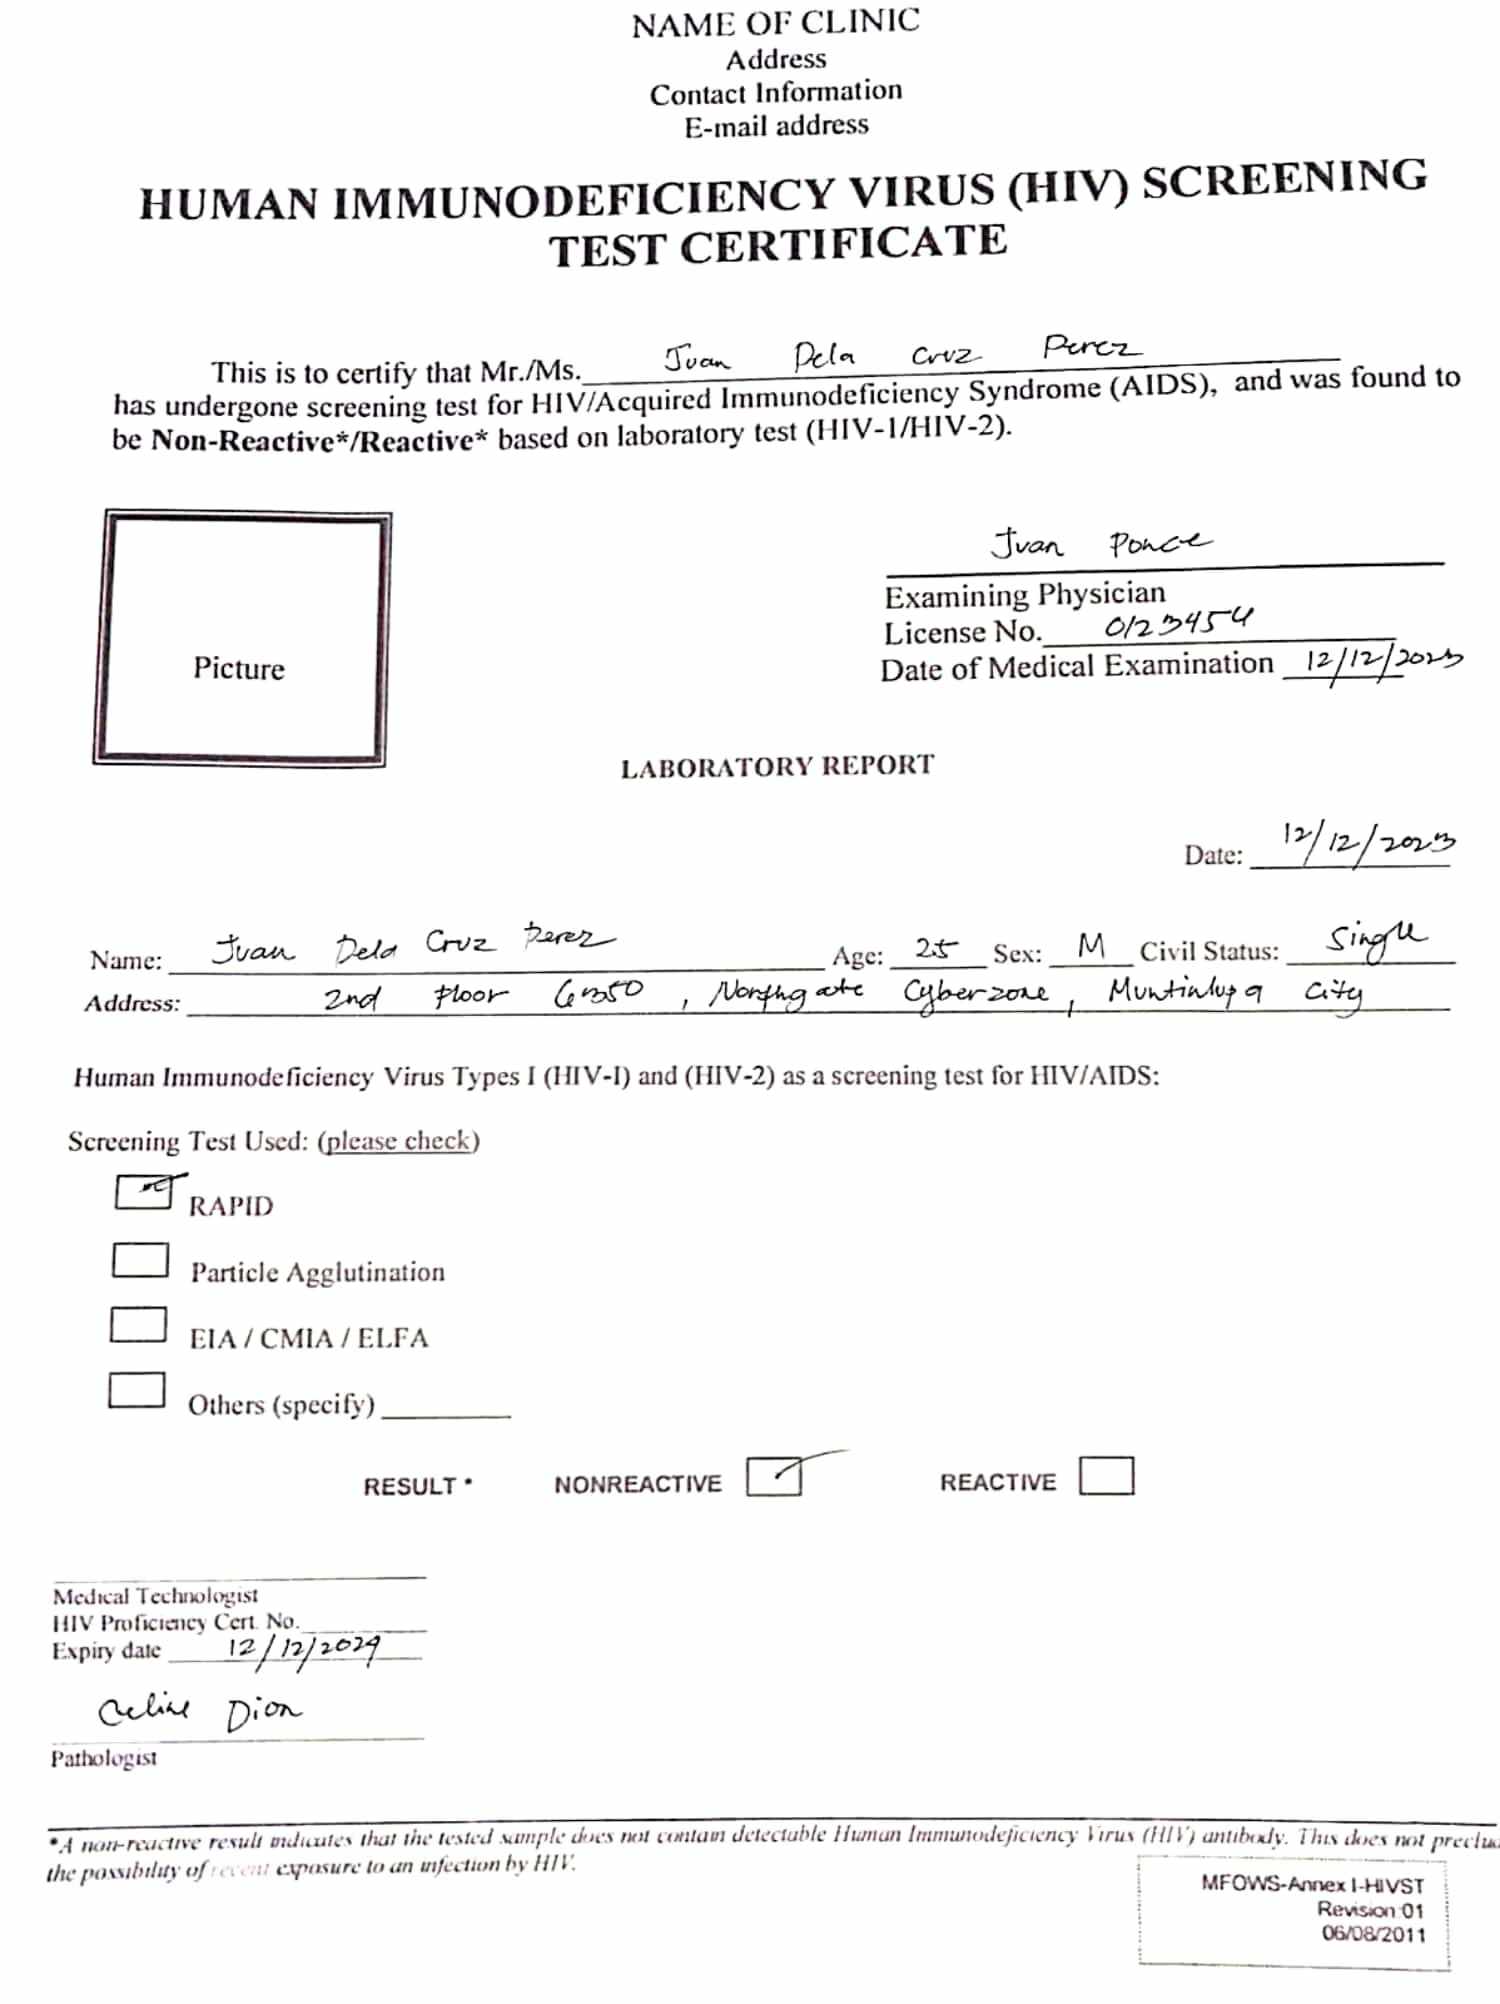 NAME OF CLINIC
Address
Contact Information
E-mail address
HUMAN IMMUNODEFICIENCY VIRUS (HIV) SCREENING
TEST CERTIFICATE
This is to certify that Mr./Ms. Juan Dela Cruz Perez
has undergone screening test for HIV/Acquired Immunodeficiency Syndrome (AIDS), and was found to
be Non-Reactive*/Reactive* based on laboratory test (HIV-1/HIV-2).
Picture
Juan Ponce
Examining Physician
License No. 0123454
Date of Medical Examination 12/12/2023
LABORATORY REPORT
Date: 12/12/2023
Name: Juan Dela Cruz Perez Age: 25 Sex: M Civil Status: Single
Address: 2nd Floor , Northgate Cyberzone, Muntinlupa City
Human Immunodeficiency Virus Types I (HIV-I) and (HIV-2) as a screening test for HIV/AIDS:
Screening Test Used: (please check)
RAPID
Particle Agglutination
EIA / CMIA / ELFA
Others (specify)
RESULT * NONREACTIVE REACTIVE
Medical Technologist
HIV Proficiency Cert. No.
Expiry date 12/12/2029
Celine Dion
Pathologist
*A non-reactive result indicates that the tested sample does not contain detectable Human Immunodeficiency Virus (HIV) antibody. This does not preclu
the possibility of recent exposure to an infection by HIV.
MFOWS-Annex I-HIVST
Revision 01
06/08/2011